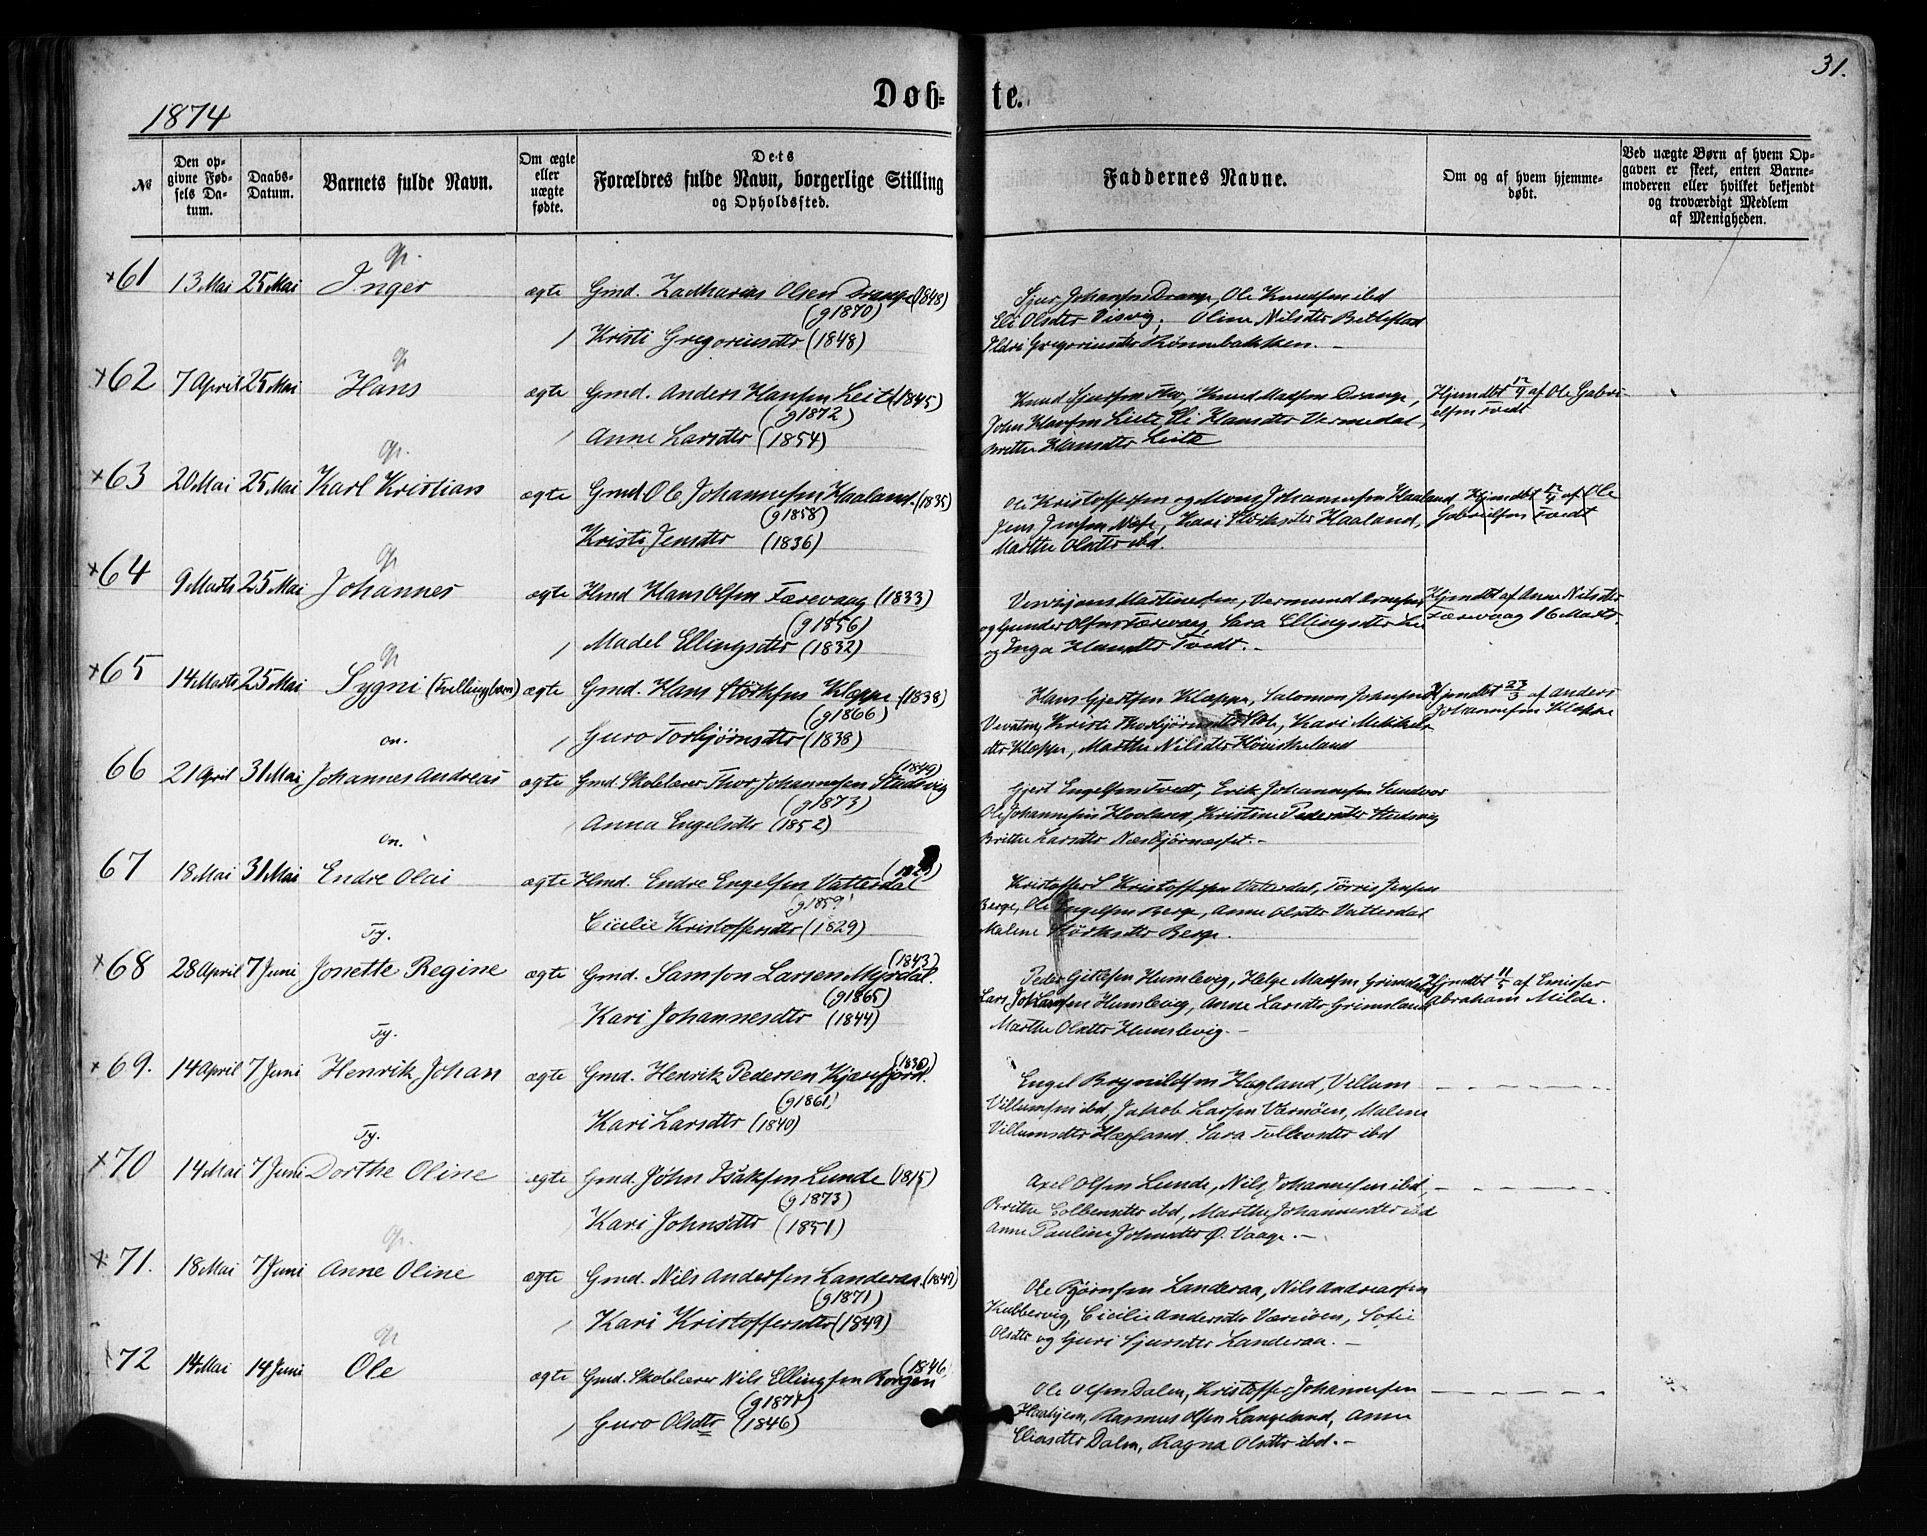 31.
1874
Døb- te.
№
Den op-
givne Fød-
sels Da-
tum.
Daabs-
Datum.
Barnets fulde Navn.
Om ægte
eller
uægte
fødte.
Dets
Forældres fulde Navn, borgerlige Stilling
og Opholdssted.
Faddernes Navne.
Om og af hvem hjemme-
døbt.
Ved uægte Børn af hvem Op-
gaven er skeet, enten Barne-
moderen eller hvilket bekjendt
og troværdigt Medlem
af Menigheden.
×61 13 Mai 25 Mai Inger ægte Gmd. Zacharias Olsen Drange (1848)
(g1870)
Kristi Gregoriusdtr (1848)
Sjur Johansen Drange, Ole Knudsen ibd
Eli Olsdtr Visvig, Oline Nilsdtr
Gregoriusdtr Rönnebakken. -
×62 7 April 25 Mai Hans ægte Gmd. Anders Hansen Leite (1845)
(g1872)
Anne Larsdtr (1854)
Knud Sjursen Knud Madsen Drange,
John Hansen Leite Eli Hansdtr Vermedal,
Brithe Hansdtr Leite
Hjemdbt 12/4 af Ole Gabri-
elsen Tvedt
×63 20 Mai 25 Mai Karl Kristian ægte Gmd. Ole Johannesen Haaland. (1835)
(g1858)
Kristi Jensdtr (1836)
Ole Kristoffersen og Mons Johannesen Haaland
Jens Jensen Kari Størksdtr Haaland,
Marthe Olsdtr ibd.
Hjemdbt 12/4 af Ole
Gabrielsen Tvedt
×64 9 Marts 25 Mai Johannes ægte Hmd Hans Olsen Færevaag (1833)
(g1856)
Madel Ellingsdtr (1832)
Martinesen, Vermund
og Gunder Olsen Færevaag, Sara Ellingsdtr
og Inga Hansdtr Tvedt. -
Hjemdbt af Anne Nilsdtr
Færevaag 16 Marts.
×65 14 Marts 25 Mai Sygni (Tvillingbarn) ægte Gmd. Hans Størksen Kleppe (1838)
(g1866)
Guro Torbjørnsdtr (1838)
Hans Gjertsen Kleppe, Salomon Johnsen
Kristi Thorbjørnsdtr Kari Mikkels-
dtr Kleppe, Marthe Nilsdtr
Hjemdbt 23/3 af Anders
Johannesen Kleppe
66 21 April 31 Mai Johannes Andreas ægte Gmd. Skolelærer Thor Johannesen Stuðsvig
(1849)
(g1873)
Anna Engelsdtr (1852)
Gjert Engelsen Tvedt, Erik Johannesen
Ole Johannesen Kristine Pedersdtr
Brithe Larsdtr
67 18 Mai 31 Mai Endre Olai ægte Hmd. Endre Engelsen Vatterdal
(g1859)
Cicilie Kristoffersdtr (1829)
Kristoffer S Kristoffersen Vatterdal, Tørris Jensen
Berge, Ole Engelsen Berge, Anne Olsdtr Vatterdal
Malene Størksdtr Berge.
Ty.
×68 28 April 7 Juni Jonette Regine ægte Gmd. Samson Larsen Myrdal.
(1843)
(g1865)
Kari Johannesdtr (1844)
Peder Gitlesen Humlevig, Helge Madsen Grimsland
Lars Johansen Humlevig, Anne Larsdtr Grimsland
Marthe Olsdtr Humlevig. -
Hjemdbt 11/5 af Emissær
Abraham Milde.
Ty.
×69. 14 April 7 Juni Henrik Johan ægte Gmd. Henrik Pedersen Kjærefjord.
(g1861)
Kari Larsdtr (1840)
Engel Brynildsen Hægland, Villum
Villumsen ibd, Jakob Larsen Værnöen, Malene
Villumsdtr Hægland. Sara ibd
Ty.
×70 14 Mai 7 Juni Dorthe Oline ægte Gmd. John Isaksen Lunde (1815)
(g1873)
Kari Johnsdtr (1851)
Axel Olsen Lunde, Nils Johannesen ibd,
Brithe Colbensdtr ibd, Marthe Johannesdtr ibd
Anne Pauline Johnsdtr Ø. Vaage. -
×71. 18 Mai 7 Juni Anne Oline ægte Gmd. Nils Andersen Landeraa. (1849)
(g1871)
Kari Kristoffersdtr (1849)
Ole Bjørnsen Landeraa, Nils Andreassen
Kubbervig, Cicilie Andersdtr Værnöen, Sofie
Olsdtr og Guri Sjursdtr Landeraa. -
72 14 Mai 14 Juni Ole ægte Gmd. Skolelærer Nils Ellingsen Borgen
(1846)
(g1871)
Guro Olsdtr (1846)
Ole Olsen Dalen, Kristoffer Johannesen
Rasmus Olsen Langeland, Anne
Eliasdtr Dalen, Ragna Olsdtr ibd. -